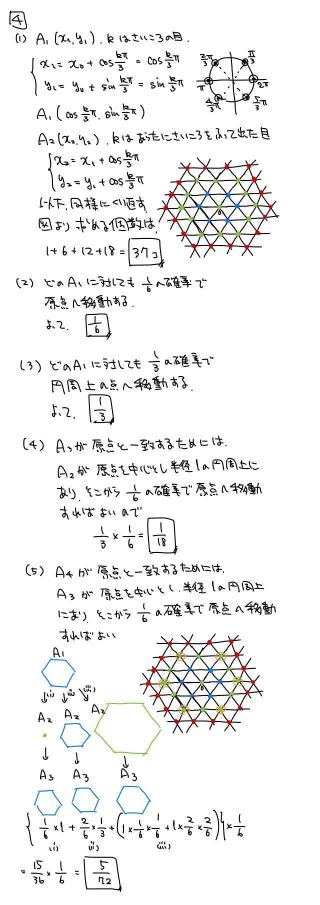 4
(1) A₁(x₁,y₁), kはさいころの目.
x₁ = x₀ + cos k/3 π = cos k/3 π
y₁ = y₀ + sin k/3 π = sin k/3 π
2/3π π/3
π 2π
4/3π 5/3π
A₁(cos k/3 π, sin k/3 π)
A₂(x₂,y₂), kはあらたにさいころをふって出た目
x₂ = x₁ + cos k/3 π
y₂ = y₁ + cos k/3 π
以下,同様にくり返す
図より求める個数は,
1+6+12+18 = 37コ
(2) どのA₁に対しても 1/6 の確率で
原点へ移動する.
よって, 1/6
(3) どのA₁に対しても 1/3 の確率で
円周上の点へ移動する.
よって, 1/3
(4) A₃が原点と一致するためには,
A₂が原点を中心とし半径1の円周上に
あり,そこから 1/6 の確率で原点へ移動
すればよいので
1/3 × 1/6 = 1/18
(5) A₄が原点と一致するためには,
A₃が原点を中心とし,半径1の円周上
にあり,そこから 1/6 の確率で原点へ移動
すればよい
A₁
i) ii) iii)
A₂ A₂ A₂
A₃ A₃ A₃
{ 1/6 × 1 + 2/6 × 1/3 + ( 1 × 1/6 × 1/6 + 1 × 2/6 × 2/6 ) } × 1/6
(i) (ii) (iii)
= 15/36 × 1/6 = 5/72